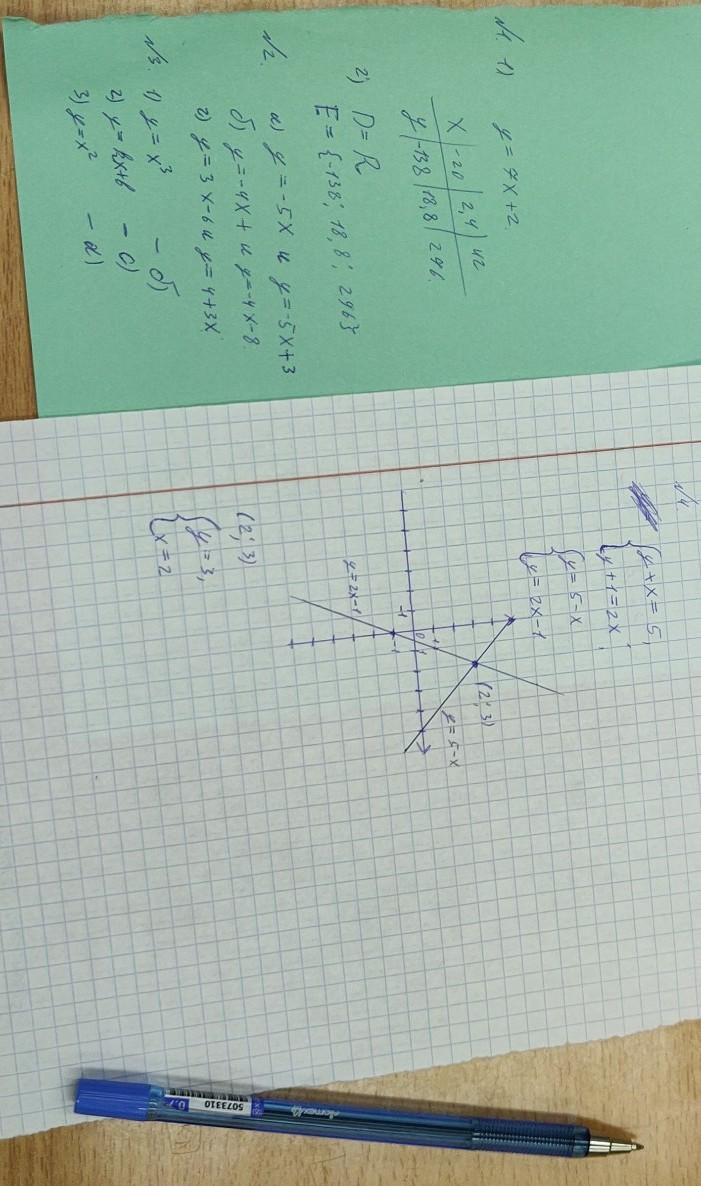 №1. 1) y = 7x+2.
x | -20 | 2,4 | 42
y | -138 | 18,8 | 296.
2) D = R
E = {-138; 18,8; 296}
№2. а) y = -5x и y = -5x+3
б) y = -4x + и y = -4x-8.
г) y = 3x-6 и y = 4+3x.
№3. 1) y = x³ - б)
2) y = kx+b - с)
3) y = x² - а)
№4
{y+x=5,
{y+1=2x;
{y=5-x
{y=2x-1
(2; 3)
y=5-x
-1
0
1
1
-1
y=2x-1
(2; 3)
{y=3,
{x=2
5073310
0,7